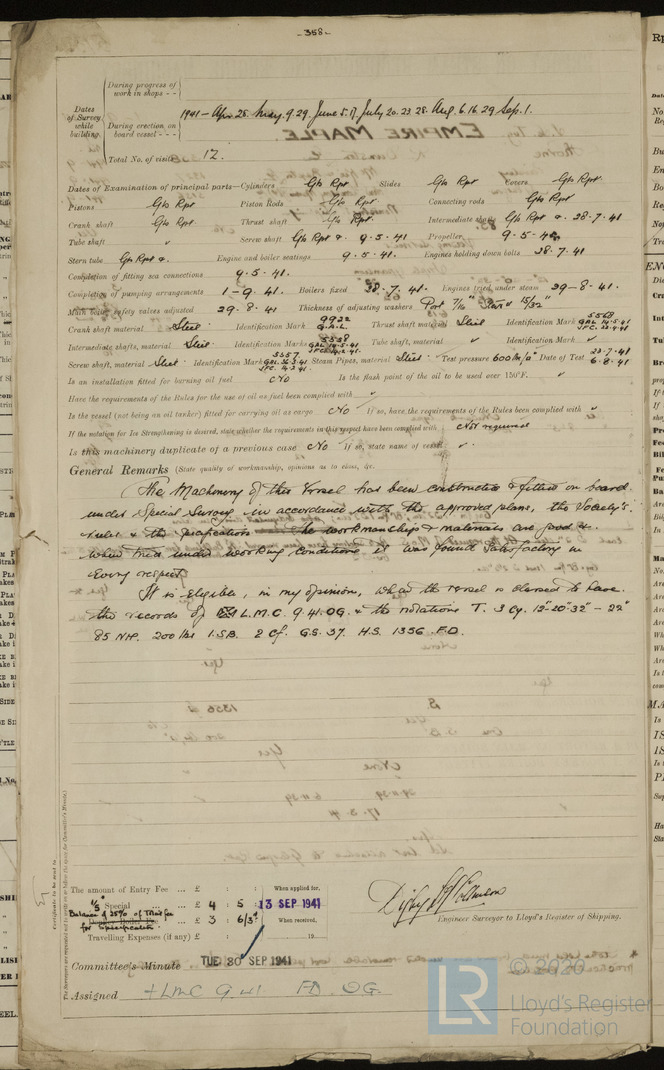 -358-
During progress of work in shops - -
Dates of Survey while building
1941 - Apr. 25. May. 9. 29. June 5. 17. July 20. 23 28. Aug. 6. 16. 29 Sep. 1.
During erection on board vessel - - -
Total No. of visits 12.
EMPIRE MAPLE
Dates of Examination of principal parts—Cylinders Gls Rpt Slides Gls Rpt Covers Gls Rpt
Pistons Gls Rpt Piston Rods Gls Rpt Connecting rods Gls Rpt
Crank shaft Gls Rpt Thrust shaft Gls Rpt Intermediate shafts Gls Rpt & 28-7-41
Tube shaft " Screw shaft Gls Rpt & 9-5-41 Propeller 9-5-41
Stern tube Gls Rpt & Engine and boiler seatings 9.5.41. Engines holding down bolts 28.7.41
Completion of fitting sea connections 9.5.41.
Completion of pumping arrangements 1-9.41. Boilers fixed 28.7.41. Engines tried under steam 29-8-41.
Main boiler safety valves adjusted 29.8.41 Thickness of adjusting washers Port 7/16" Star'd 15/32"
Crank shaft material Steel Identification Mark 9922 G.A.L. Thrust shaft material Steel Identification Mark 5568 GAL 14-5-41
Intermediate shafts, material Steel Identification Marks 5558 Tube shaft, material " Identification Mark "
Screw shaft, material Steel Identification Mark 5557 Steam Pipes, material Steel Test pressure 600 lbs/□" Date of Test 23-7-41 6-8-41
Is an installation fitted for burning oil fuel No Is the flash point of the oil to be used over 150°F. "
Have the requirements of the Rules for the use of oil as fuel been complied with "
Is the vessel (not being an oil tanker) fitted for carrying oil as cargo No If so, have the requirements of the Rules been complied with "
If the notation for Ice Strengthening is desired, state whether the requirements in this respect have been complied with Not required
Is this machinery duplicate of a previous case No If so, state name of vessel "
General Remarks (State quality of workmanship, opinions as to class, &c.
The Machinery of this Vessel has been constructed & fitted on board
under Special Survey in accordance with the approved plans, the Society's
rules & the specification. The workmanship & materials are good &
when tried under working conditions it was found satisfactory in
every respect.
It is eligible, in my opinion, when the vessel is classed to have
the records of L.M.C. 9.41.OG. & the notations T. 3 Cy. 12"-20"32" - 22"
85 N.H.P. 200 lbs 1.SB. 2 Cf. G.S. 37. H.S. 1356 .F.D.
The amount of Entry Fee ... £ : : When applied for,
4/5 Special ... £ 4 : 5 : 13 SEP 1941
Balance of 25% of this fee for Specification £ 3 : 6/3d When received,
Travelling Expenses (if any) £ : : 19
Engineer Surveyor to Lloyd's Register of Shipping.
Committee's Minute TUE 30 SEP 1941
Assigned + LMC 9 41 FD OG.
Certificate to be sent to
© 2020
LR
Lloyd's Register
Foundation